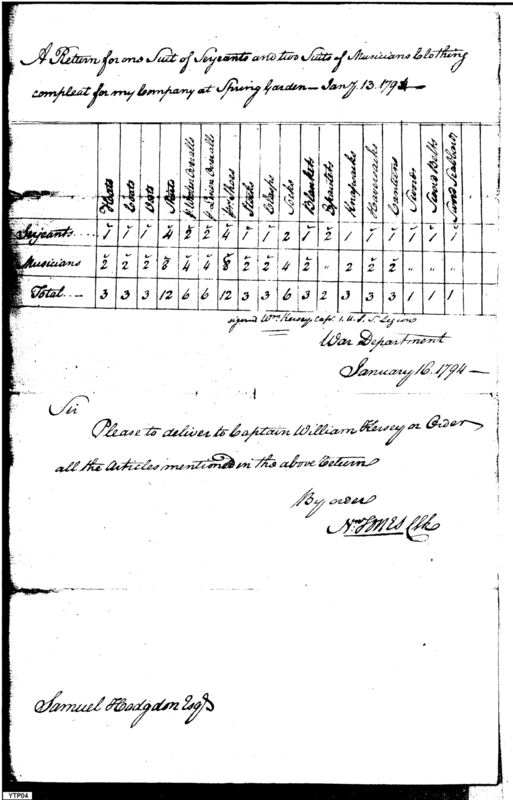 A Return for one Suit of Serjeants and two Suits of Musicians Clothing
compleat for my Company at Spring Garden — Jany. 13. 1794 —
Hats Coats Vests Shirts pr Woolen Overalls pr Linen Overalls pr Shoes Stocks Clasps Socks Blankets Epaulets Knapsacks Haversacks Canteens Swords Sword Belts Sword Scabbards
Serjeants 1 1 1 4 2 2 4 1 1 2 1 2 1 1 1 1 1 1
Musicians 2 2 2 8 4 4 8 2 2 4 2 " 2 2 2 " " "
Total 3 3 3 12 6 6 12 3 3 6 3 2 3 3 3 1 1 1
signed Wm. Kersey Capt. 1. U.S. S. Legion
War Department
January 16. 1794 —
Sir
Please to deliver to Captain William Kersey or Order
all the Articles mentioned in the above Return
By order
Nw. Jones Clk
Samuel Hodgdon Esqr
YTP04